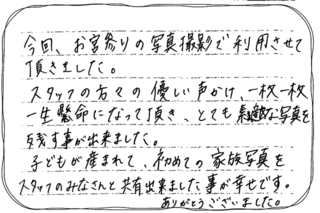 今回、お宮参りの写真撮影で利用させて
頂きました。
スタッフの方々の優しい声かけ、一枚一枚
一生懸命になって頂き、とても素敵な写真を
残す事が出来ました。
子どもが産まれて、初めての家族写真を
スタッフのみなさんと共有出来ました事が幸せです。
ありがとうございました。